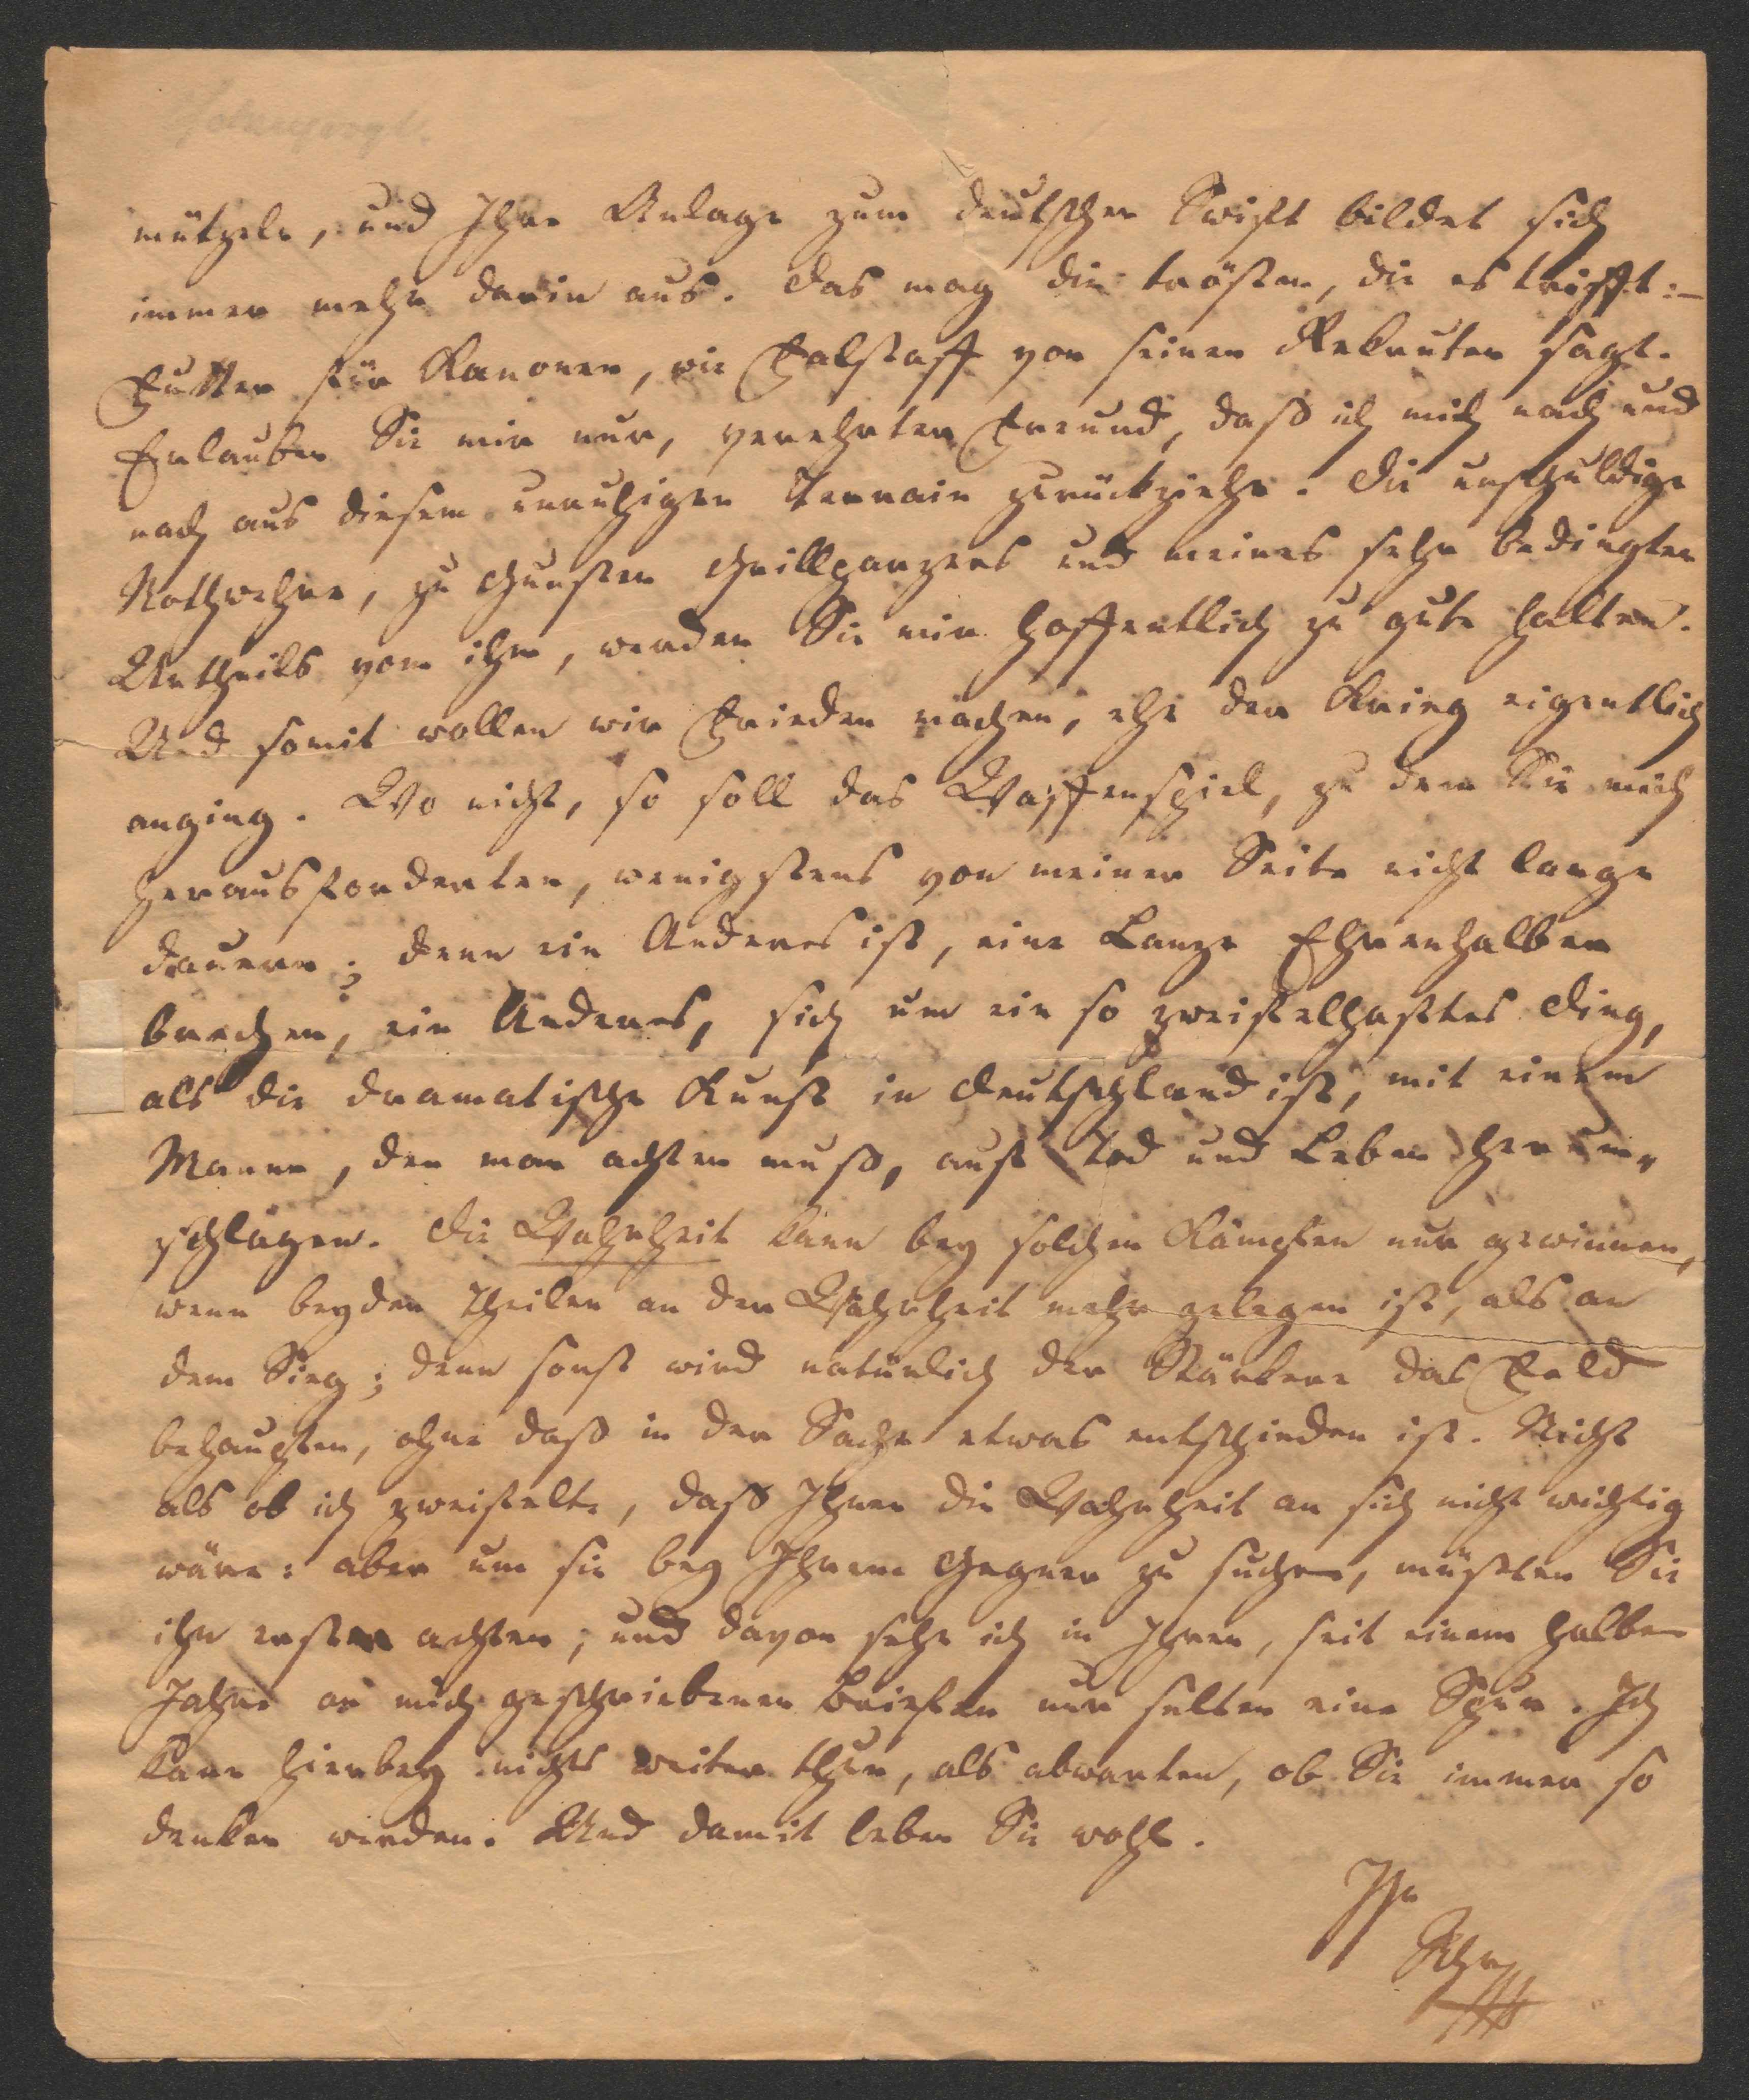 mützele, und Ihre Anlage zum deutschen Swift bildet sich
immer mehr darin aus. Das mag die trösten, die es trifft: –
Futter für Kanonen, wie Falstaff von seinen Rekruten sagt.
Erlauben Sie mir nur, verehrter Freund, daß ich mich nach und
nach aus diesem unruhigen Terrain zurückziehe. Die unschuldige
Nothwehre, zu Gunsten Grillparzers und meines sehr bedingten
Urtheils von ihm, werden Sie mir hoffentlich zu gute halten.
Und somit wollen wir Frieden machen, ehe der Krieg eigentlich
anging. Wo nicht, so soll das Waffenspiel, zu dem Sie mich
herausforderten, wenigstens von meiner Seite nicht lange
dauern; denn ein Anderes ist, eine Lanze Ehrenhalber
brechen, ein Anderes, sich um ein so zweifelhaftes Ding,
als die dramatische Kunst in Deutschland ist, mit einem
Manne, den man achten muß, auf Tod und Leben herum-
schlagen. Die Wahrheit kann bey solchen Kämpfen nur gewinnen,
wenn beyden Theilen an der Wahrheit mehr gelegen ist, als an
dem Sieg; denn sonst wird natürlich der Stärkere das Feld
behaupten, ohne daß in der Sache etwas entschieden ist. Nicht
als ob ich zweifelte, daß Ihnen die Wahrheit an sich nicht wichtig
wäre: aber um sie bey Ihrem Gegner zu suchen, müßten Sie
ihn erst achten; und davon sehe ich in Ihren, seit einem halben
Jahre an mich geschriebenen Briefen nur selten eine Spur. Ich
kann hierbey nichts weiter thun, als abwarten, ob Sie immer so
denken werden. Und damit leben Sie wohl.
Ihr